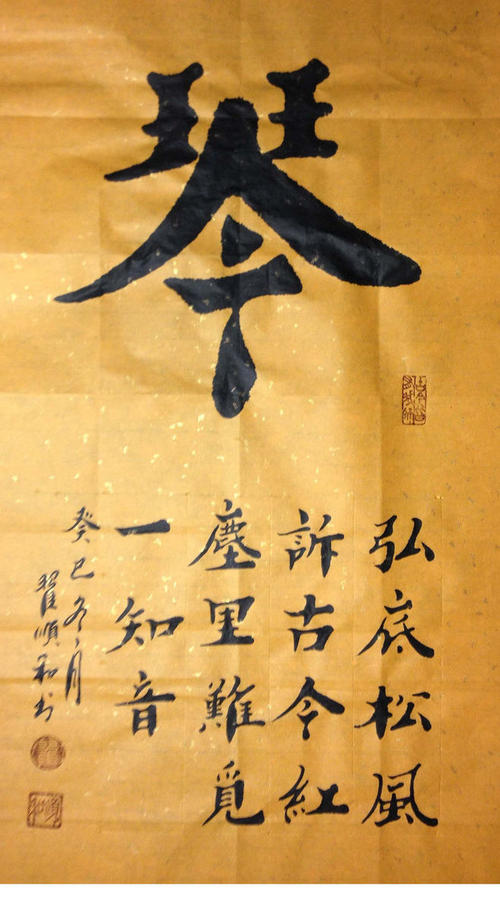 琴
弘底松風
訴古今紅
塵里難覓
一知音
癸巳冬月
翟順和书